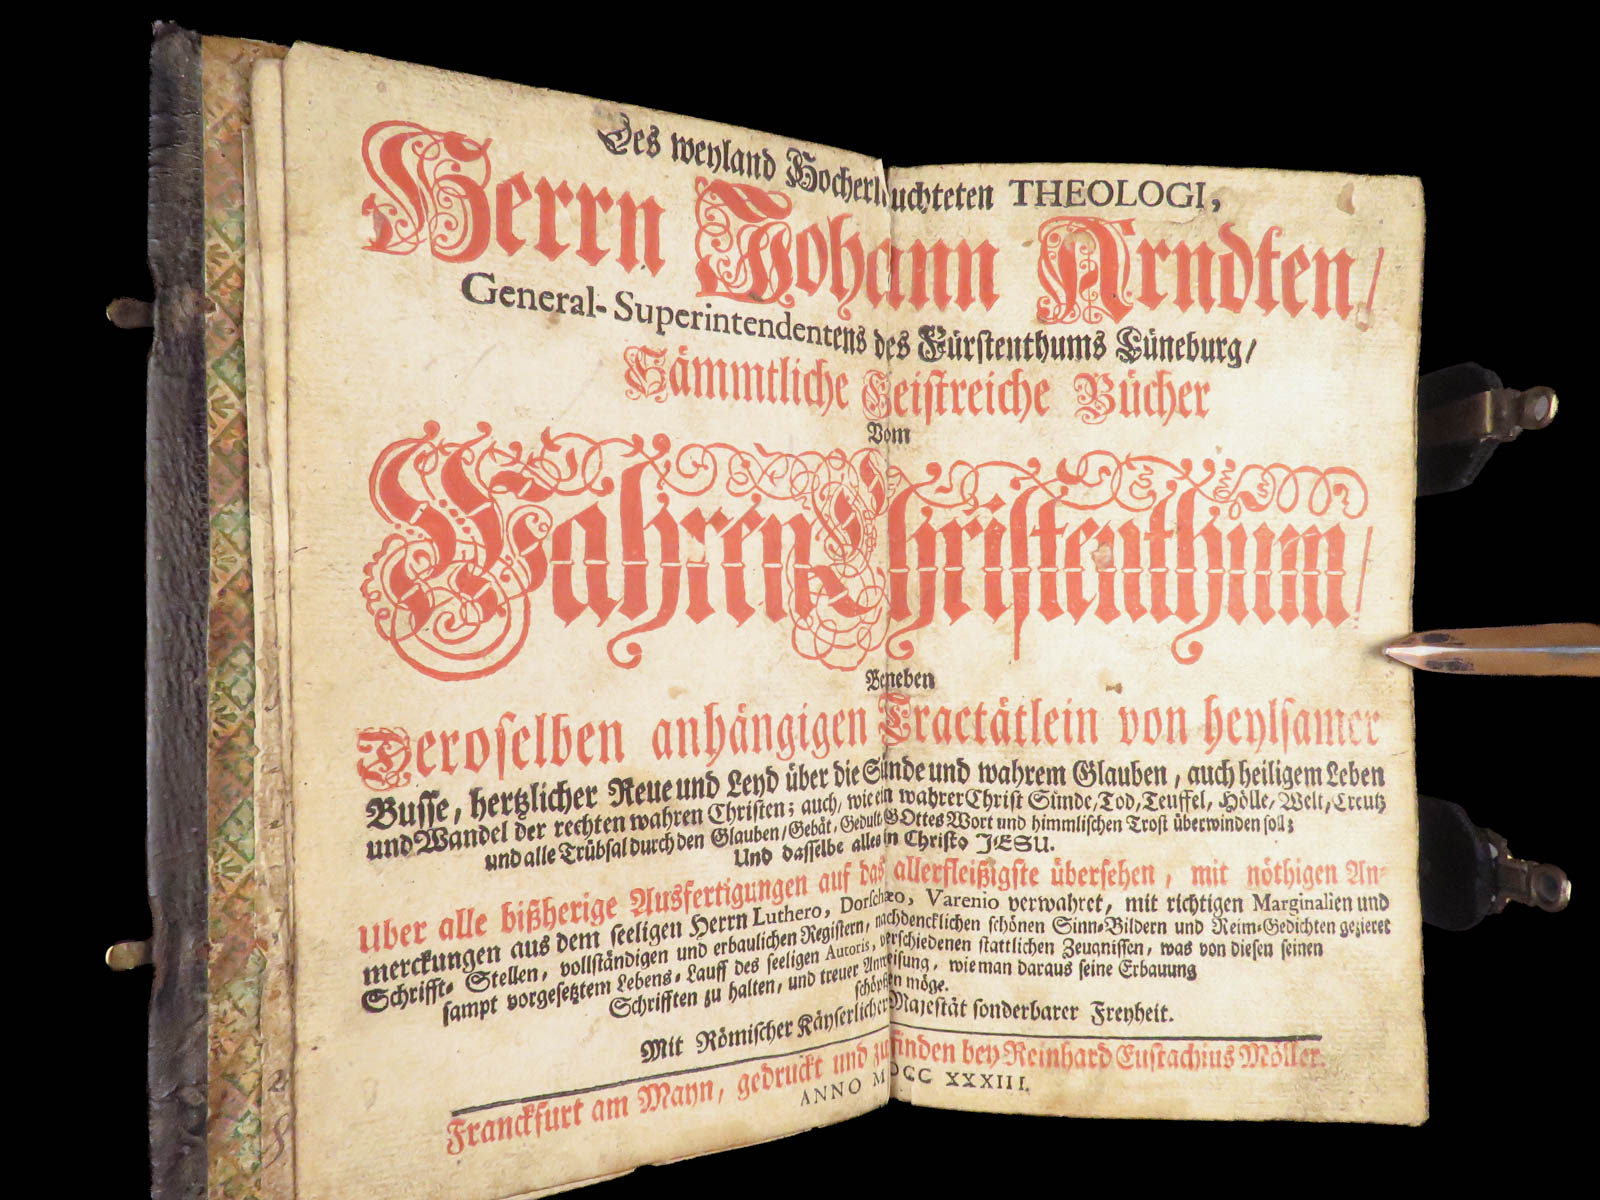 Des weyland Hocherleuchteten THEOLOGI,
Herrn Johann Arndten/
General-Superintendentens des Fürstenthums Lüneburg/
Sämmtliche Geistreiche Bücher
Vom
Wahren Christenthum/
Beneben
Deroselben anhängigen Tractätlein von heylsamer
Busse, hertzlicher Reue und Leyd über die Sünde und wahrem Glauben, auch heiligem Leben
und Wandel der rechten wahren Christen; auch, wie ein wahrer Christ Sünde, Tod, Teuffel, Hölle, Welt, Creutz
und alle Trübsal durch den Glauben/ Gebät, Gedult, GOttes Wort und himmlischen Trost überwinden soll;
Und dasselbe alles in Christo JESU.
Uber alle bißherige Ausfertigungen auf das allerfleißigste übersehen, mit nöthigen An-
merckungen aus dem seeligen Herrn Luthero, Dorschæo, Varenio verwahret, mit richtigen Marginalien und
Schrifft-Stellen, vollständigen und erbaulichen Registern, nachdencklichen schönen Sinn-Bildern und Reim-Gedichten gezieret
sampt vorgesetztem Lebens-Lauff des seeligen Autoris, verschiedenen stattlichen Zeugnissen, was von diesen seinen
Schrifften zu halten, und treuer Anweisung, wie man daraus seine Erbauung
schöpffen möge.
Mit Römischer Käyserlicher Majestät sonderbarer Freyheit.
Franckfurt am Mayn, gedruckt und zu finden bey Reinhard Eustachius Möller.
ANNO MDCC XXXIII.